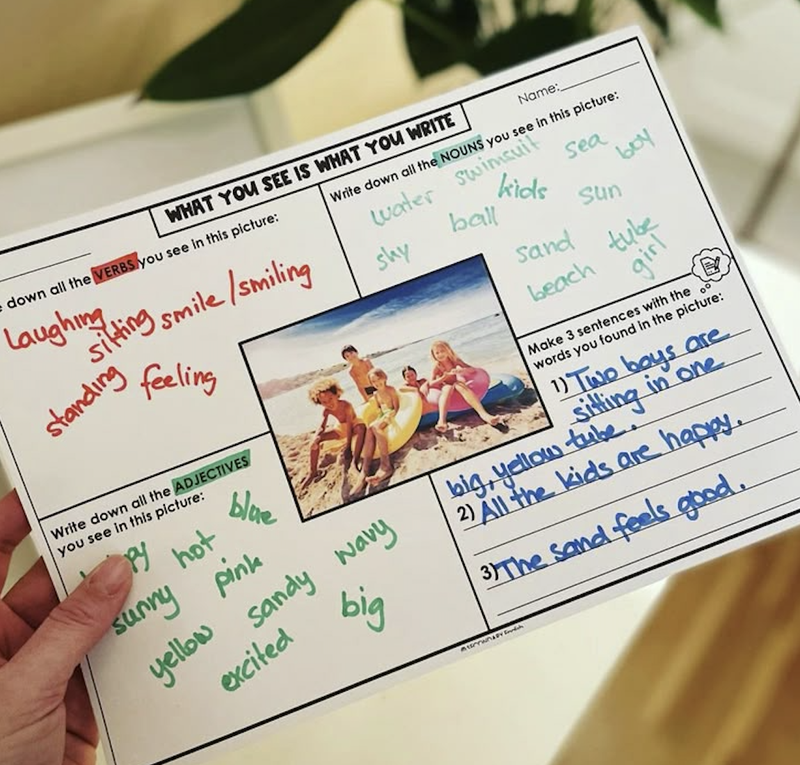 Name:
WHAT YOU SEE IS WHAT YOU WRITE
down all the VERBS you see in this picture:
laughing
sitting
smile/smiling
standing
feeling
Write down all the NOUNS you see in this picture:
water swimsuit sea boy
kids sun
sky ball
sand tube
beach girl
Write down all the ADJECTIVES
you see in this picture:
hot blue
sunny pink wavy
yellow sandy big
excited
Make 3 sentences with the
words you found in the picture:
1) Two boys are
sitting in one
big, yellow tube.
2) All the kids are happy.
3) The sand feels good.